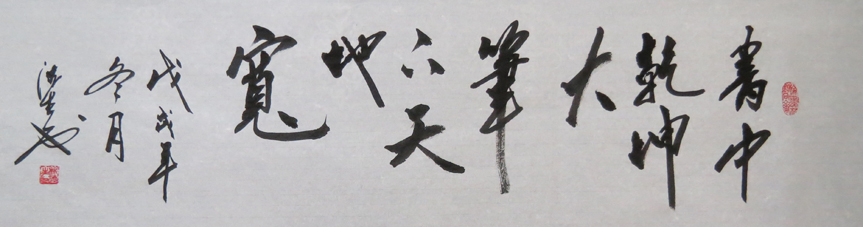 書中
乾坤
大
筆
下天
地
寬
戊戌年
冬月